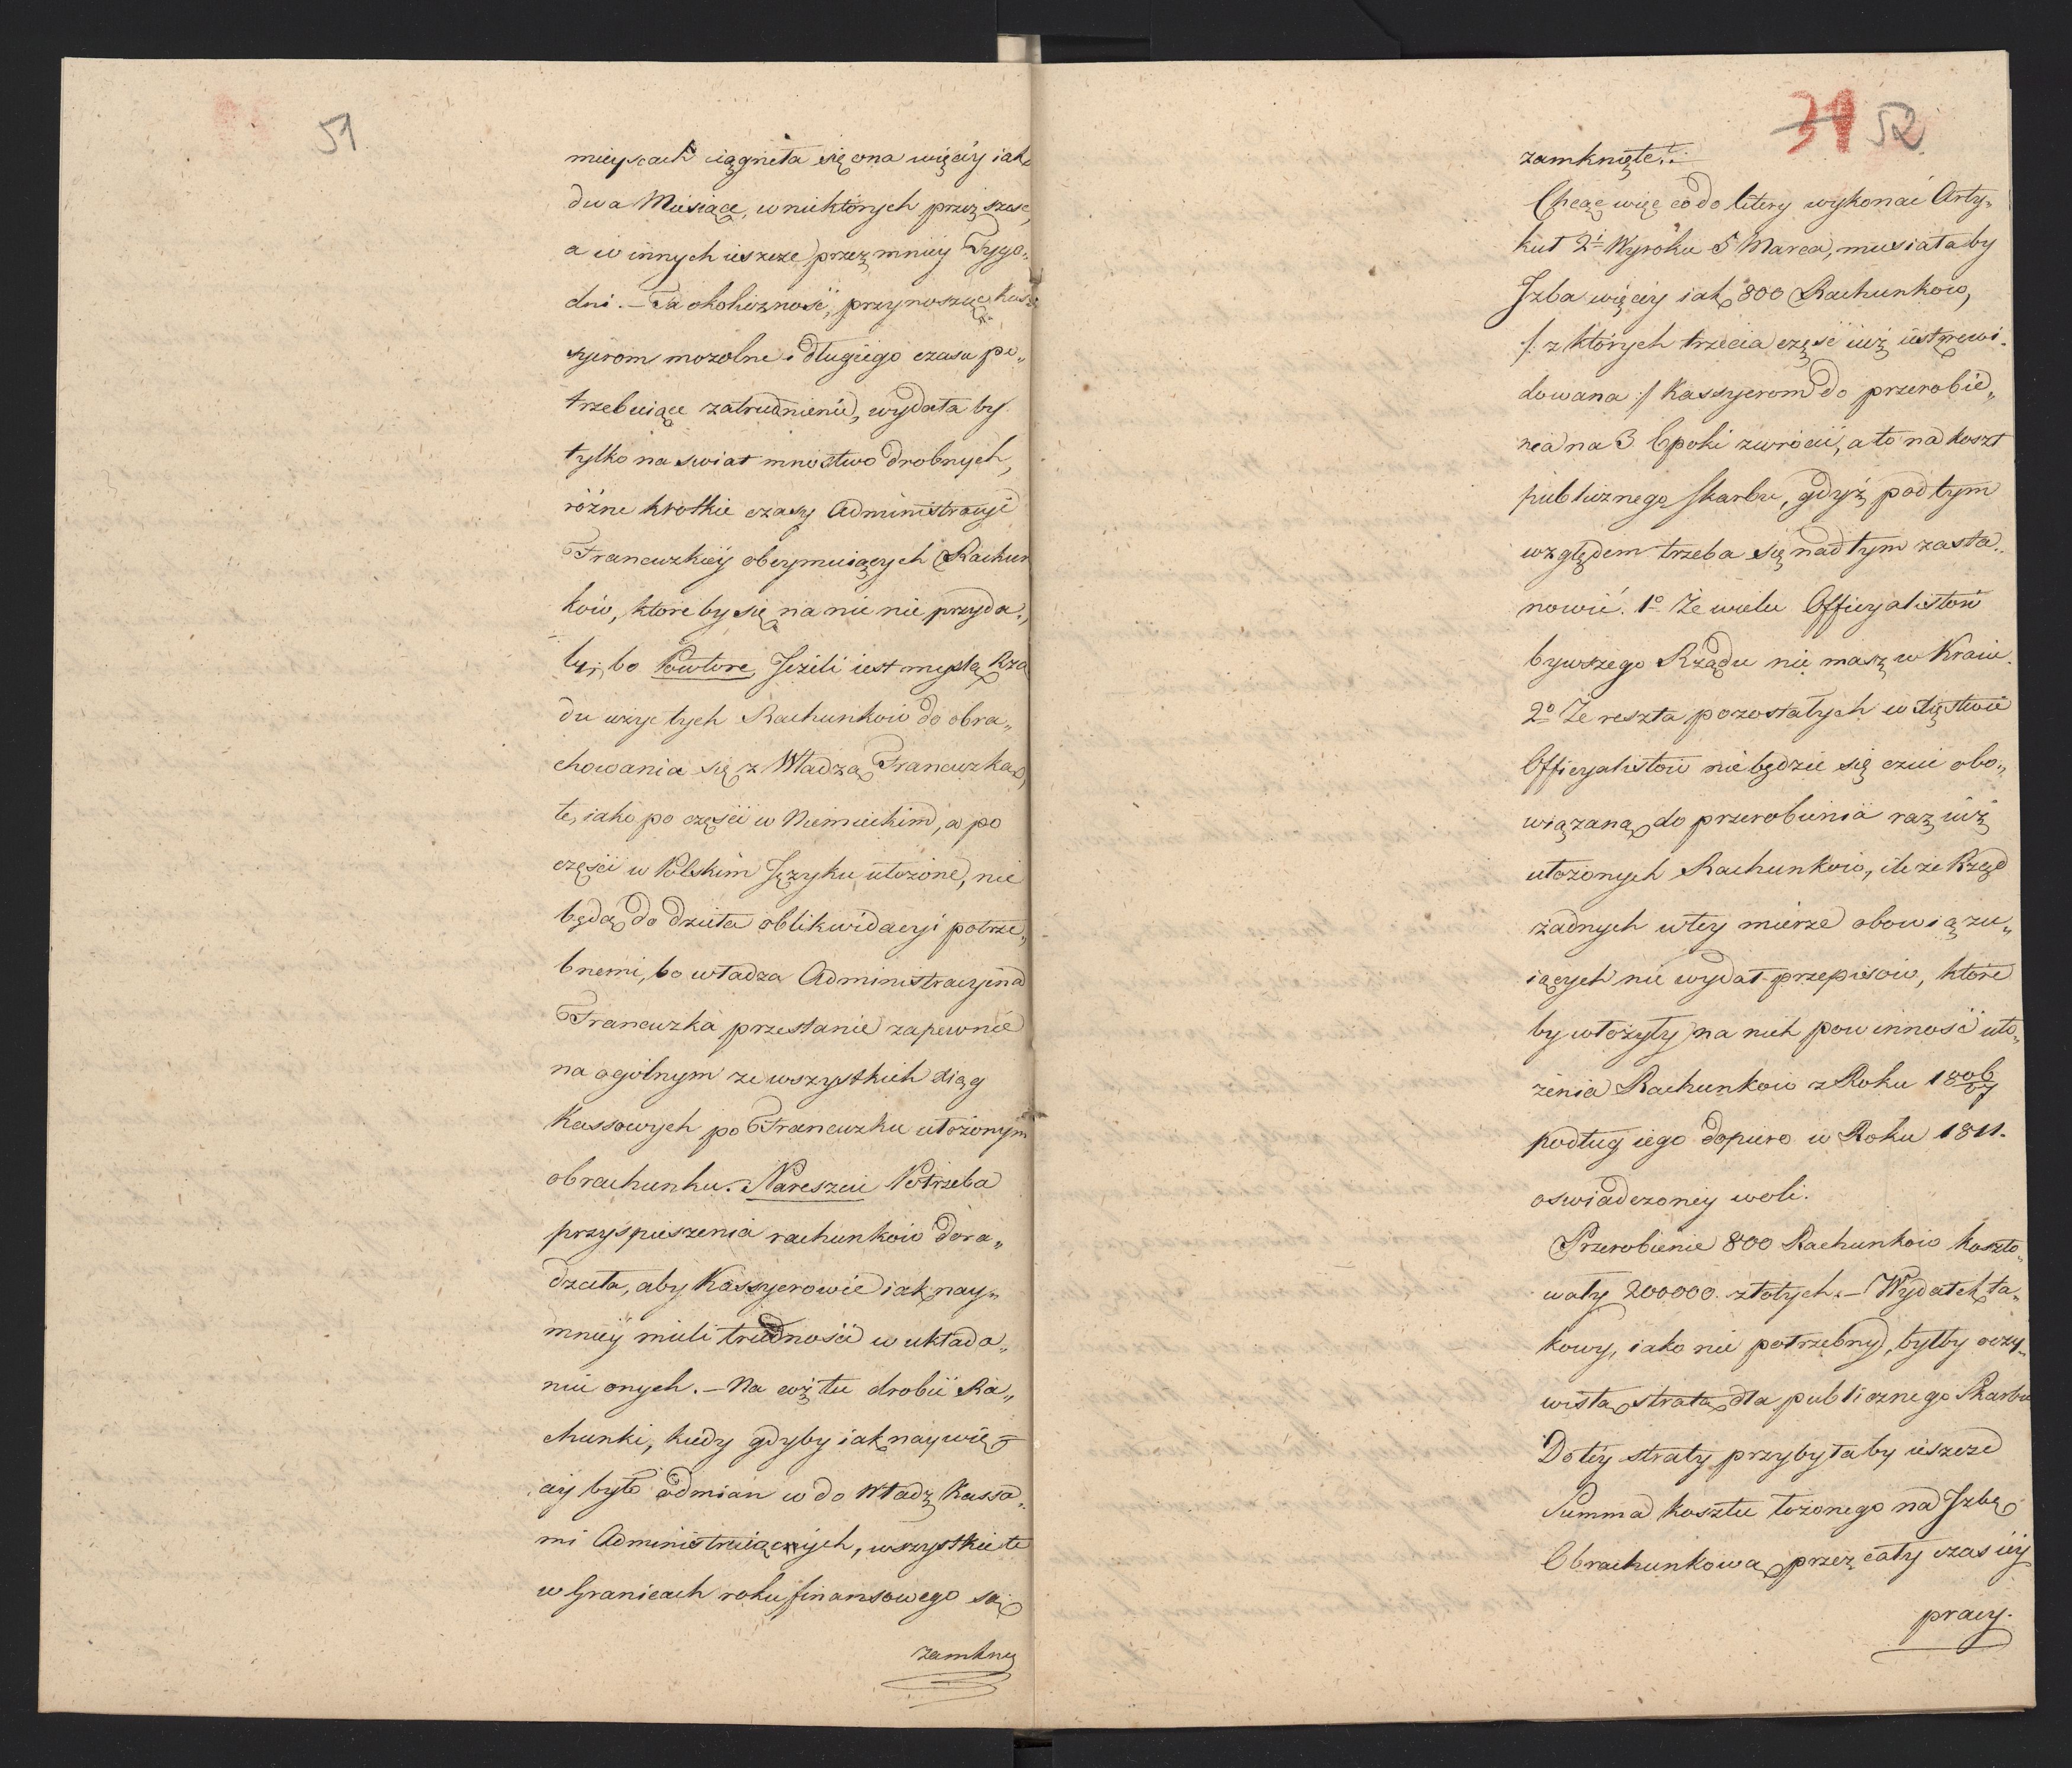 51
mieyscach ciągneła się ona więcéy iak
dwa Miesiące, w niektórych przez szesc,
a w innych ieszcze przez mniéy Tygo„
dni. — Ta okoliczność, przynosząc Kas„
syerom mozolne i długiego czasu po„
trzebuiące zatrudnienie, wydała by
tylko na swiat mnóstwo drobnych,
różne krótkie czasy Administracyi
Francuzkiéy obeymuiących Rachun
ków, które by się na nic nie przyda„
ły, bo Powtore Jeżeli iest myslą Rzą
du użyc tych Rachunków do obra„
chowania się z Władzą Francuzką,
te, iako po części w Niemieckim, a po
części w Polskim Języku ułożone, nie
będą do dzieła oblikwidacyi potrze„
bnemi, bo władza Administracyina
Francuzka przestanie zapewnie
na ogólnym ze wszystkich Xiąg
Kassowych po Francuzku ułożonym
obrachunku. Nareszcie Potrzeba
przyspieszenia rachunków dora„
dzała, aby Kassyerowie iak nay„
mniéy mieli trudności w układa„
niu onych. — Na cóż tu drobić Ra„
chunki, kiedy gdyby iak naywię„
céy było odmian w do Władz Kassa„
mi Administruiących, wszystkie te
w Granicach roku finansowego są
zamknię
31 52
zamknięte.
Chcąc więc co do litery wykonać Arty„
kuł 2i Wyroku 5 Marca, musiałaby
Jzba więcéy iak 800 Rachunków,
/: z których trzecia część iuż iest rewi„
dowana :/ Kassyerom do przerobie„
nia na 3 Epoki zwrócić, a to na koszt
publicznego Skarbu, gdyż pod tym
względem trzeba się nad tym zasta„
nowić. 1o Że wielu Officyalistów
bywszego Rządu nie masz w Kraiu.
2o Że reszta pozostałych w Xięstwie
Officyalistów nie będzie się czuć obo„
wiązaną do przerobienia raz iuż
ułożonych Rachunków, ile że Rząd
żadnych w téy mierze obowiązu„
iących nie wydał przepisów, które
by włożyły na nich powinność uło„
żenia Rachunków z Roku 1806/07
podług iego dopiero w Roku 1811.
oswiadczonéy woli.
Przerobienie 800 Rachunków koszto„
wały 200000 złotych. — Wydatek ta„
kowy, iako nie potrzebny, byłby oczy„
wistą stratą dla publicznego Skarbu
Do téy straty przybyłaby ieszcze
Summa kosztu łożonego na Jzbę
Obrachunkową przez cały czas iéy
pracy.